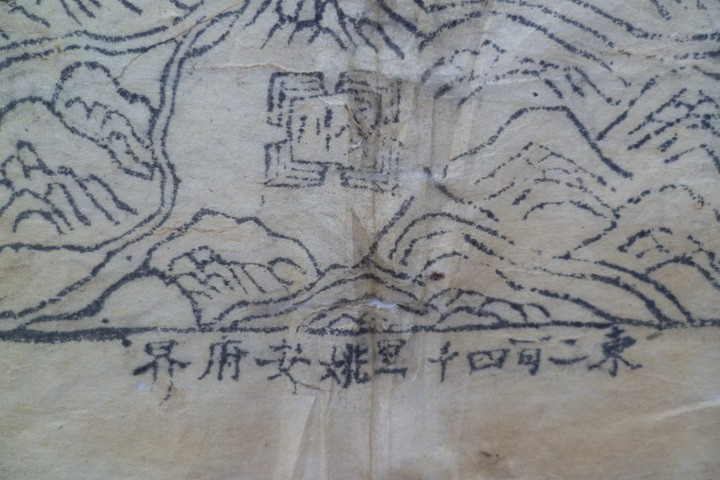 東二百四十里姚安府界